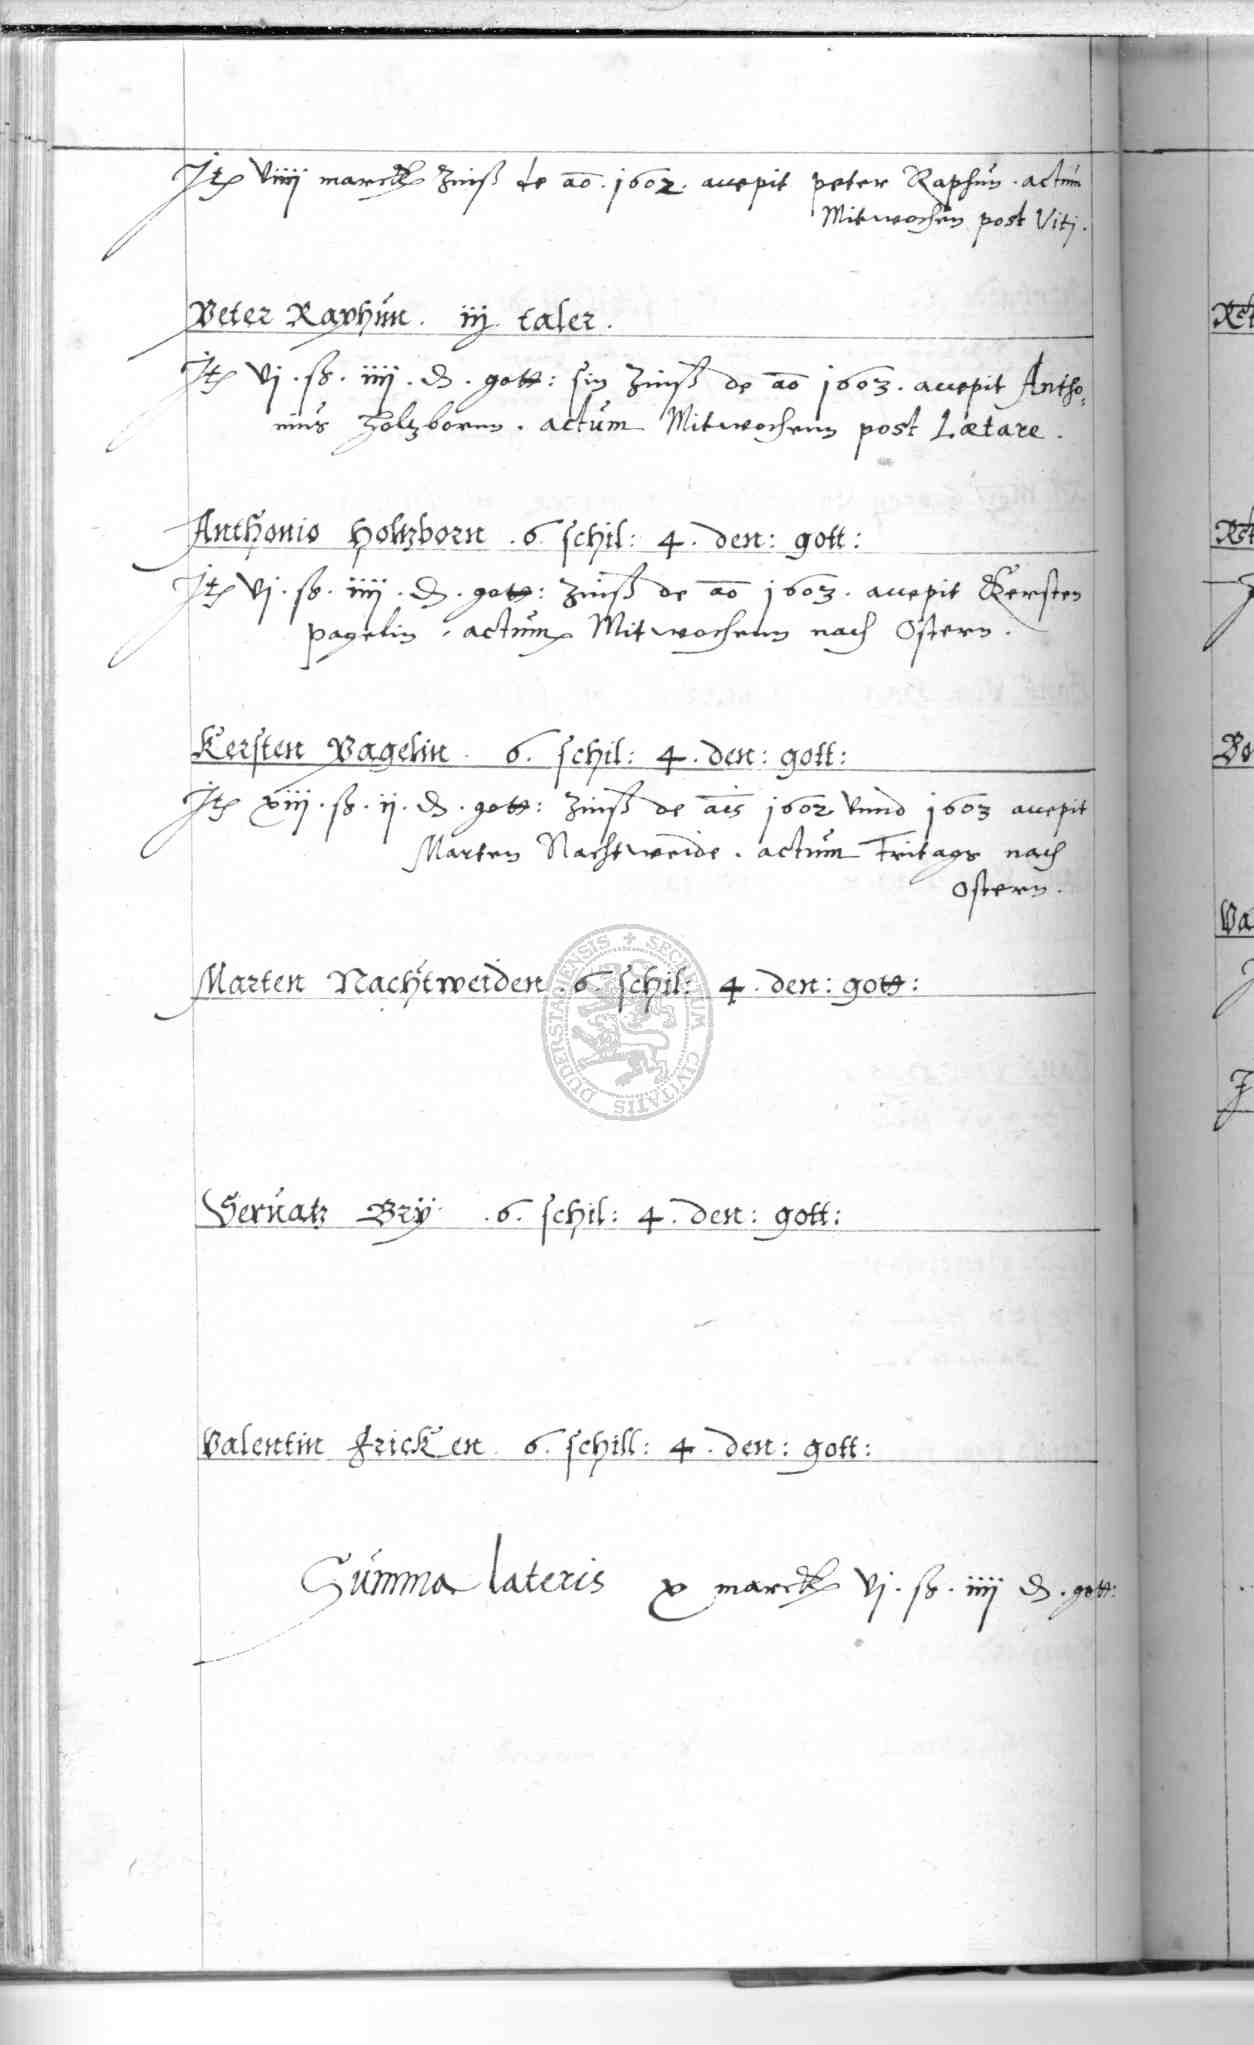 Jtem viiij marck Zinß de ao. 1602. accepit peter Raphun. actum
Mitwochen post Viti.
Peter Raphun. iij taler.
Jtem vj. ß. iiij. d. gott: sin Zinß de ao 1603. accepit Antho=
nius Holtzbornn. actum Mitwochenn post Lætare.
Anthonio Holtzborn. 6. schil: 4. den: gott:
Jtem vj. ß. iiij. d. gott: Zinß de ao 1603. accepit Kersten
pagelin, actum Mitwochenn nach Ostern.
Kersten Pagelin. 6. schil: 4. den: gott:
Jtem xiij. ß. ij. d. gott: Zinß de ais 1602 vnnd 1603 accepit
Marten Nachtweide. actum Fritags nach
Ostern.
Marten Nachtweiden. 6. schil: 4. den: gott:
SECRETUM CIVITATIS DUDERSTADENSIS
Servatz Brÿ. 6. schil: 4. den: gott:
Valentin Fricken. 6. schill: 4. den: gott:
Summa lateris x marck vj. ß. iiij d. gott: